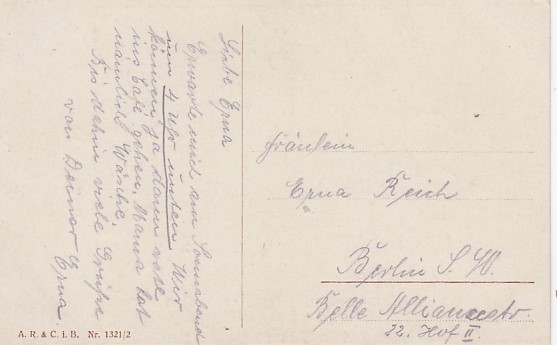 Liebe Erna
Erwarte mich am Sonnabend
um 4 Uhr unten. Wir
können ja dann erst
ins Café gehen, Mama hat
nämlich Wäsche.
Bis dahin viele Grüße
von Deiner Erna.
Fräulein
Erna Reich
Berlin S. W.
Belle Alliancestr.
22. Hof II
A. R. & C. i. B. Nr. 1321/2